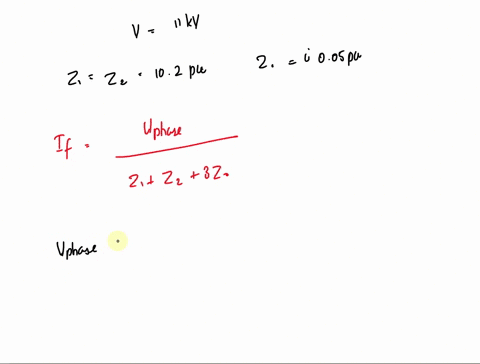 V = 11 kV
Z₁ = Z₂ = 10.2 pu
Z₀ = i 0.05 pu
If = Uphase / Z₁ + Z₂ + 3Z₀
Vphase